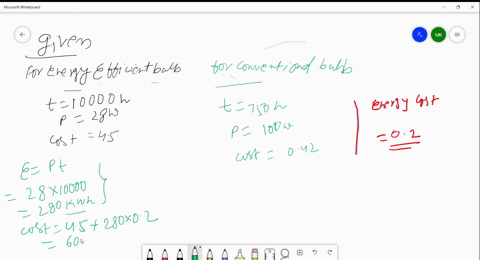 Microsoft Whiteboard
MK
given
For Energy Efficient bulb
t=10000h
P = 28W
cost = 45
for conventional bulb
t = 750h
P = 100w
cost = 0.42
Energy Cost
= 0.2
E = Pt
= 28×10000
= 280 kwh
cost = 4.5 + 280×0.2
= 60